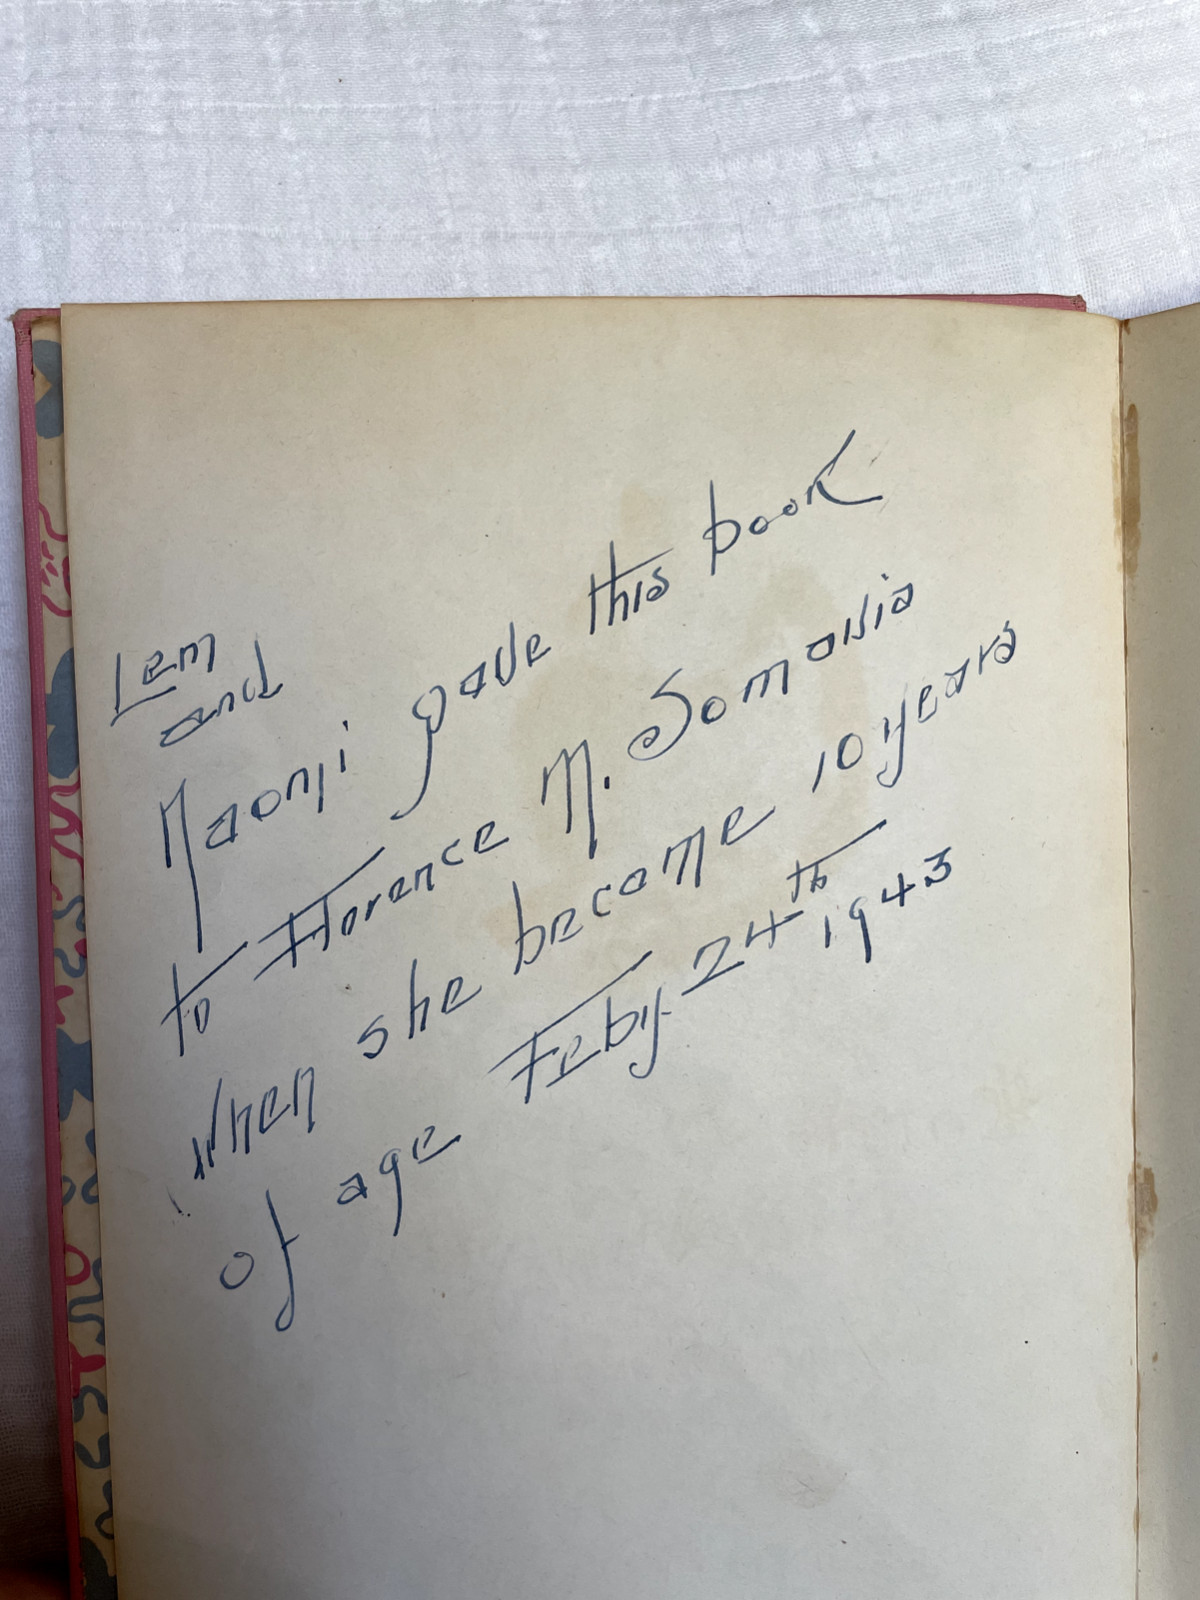 Lem
and
Naomi gave this book
to Florence M.
when she become 10 years
of age Feby 24th 1943